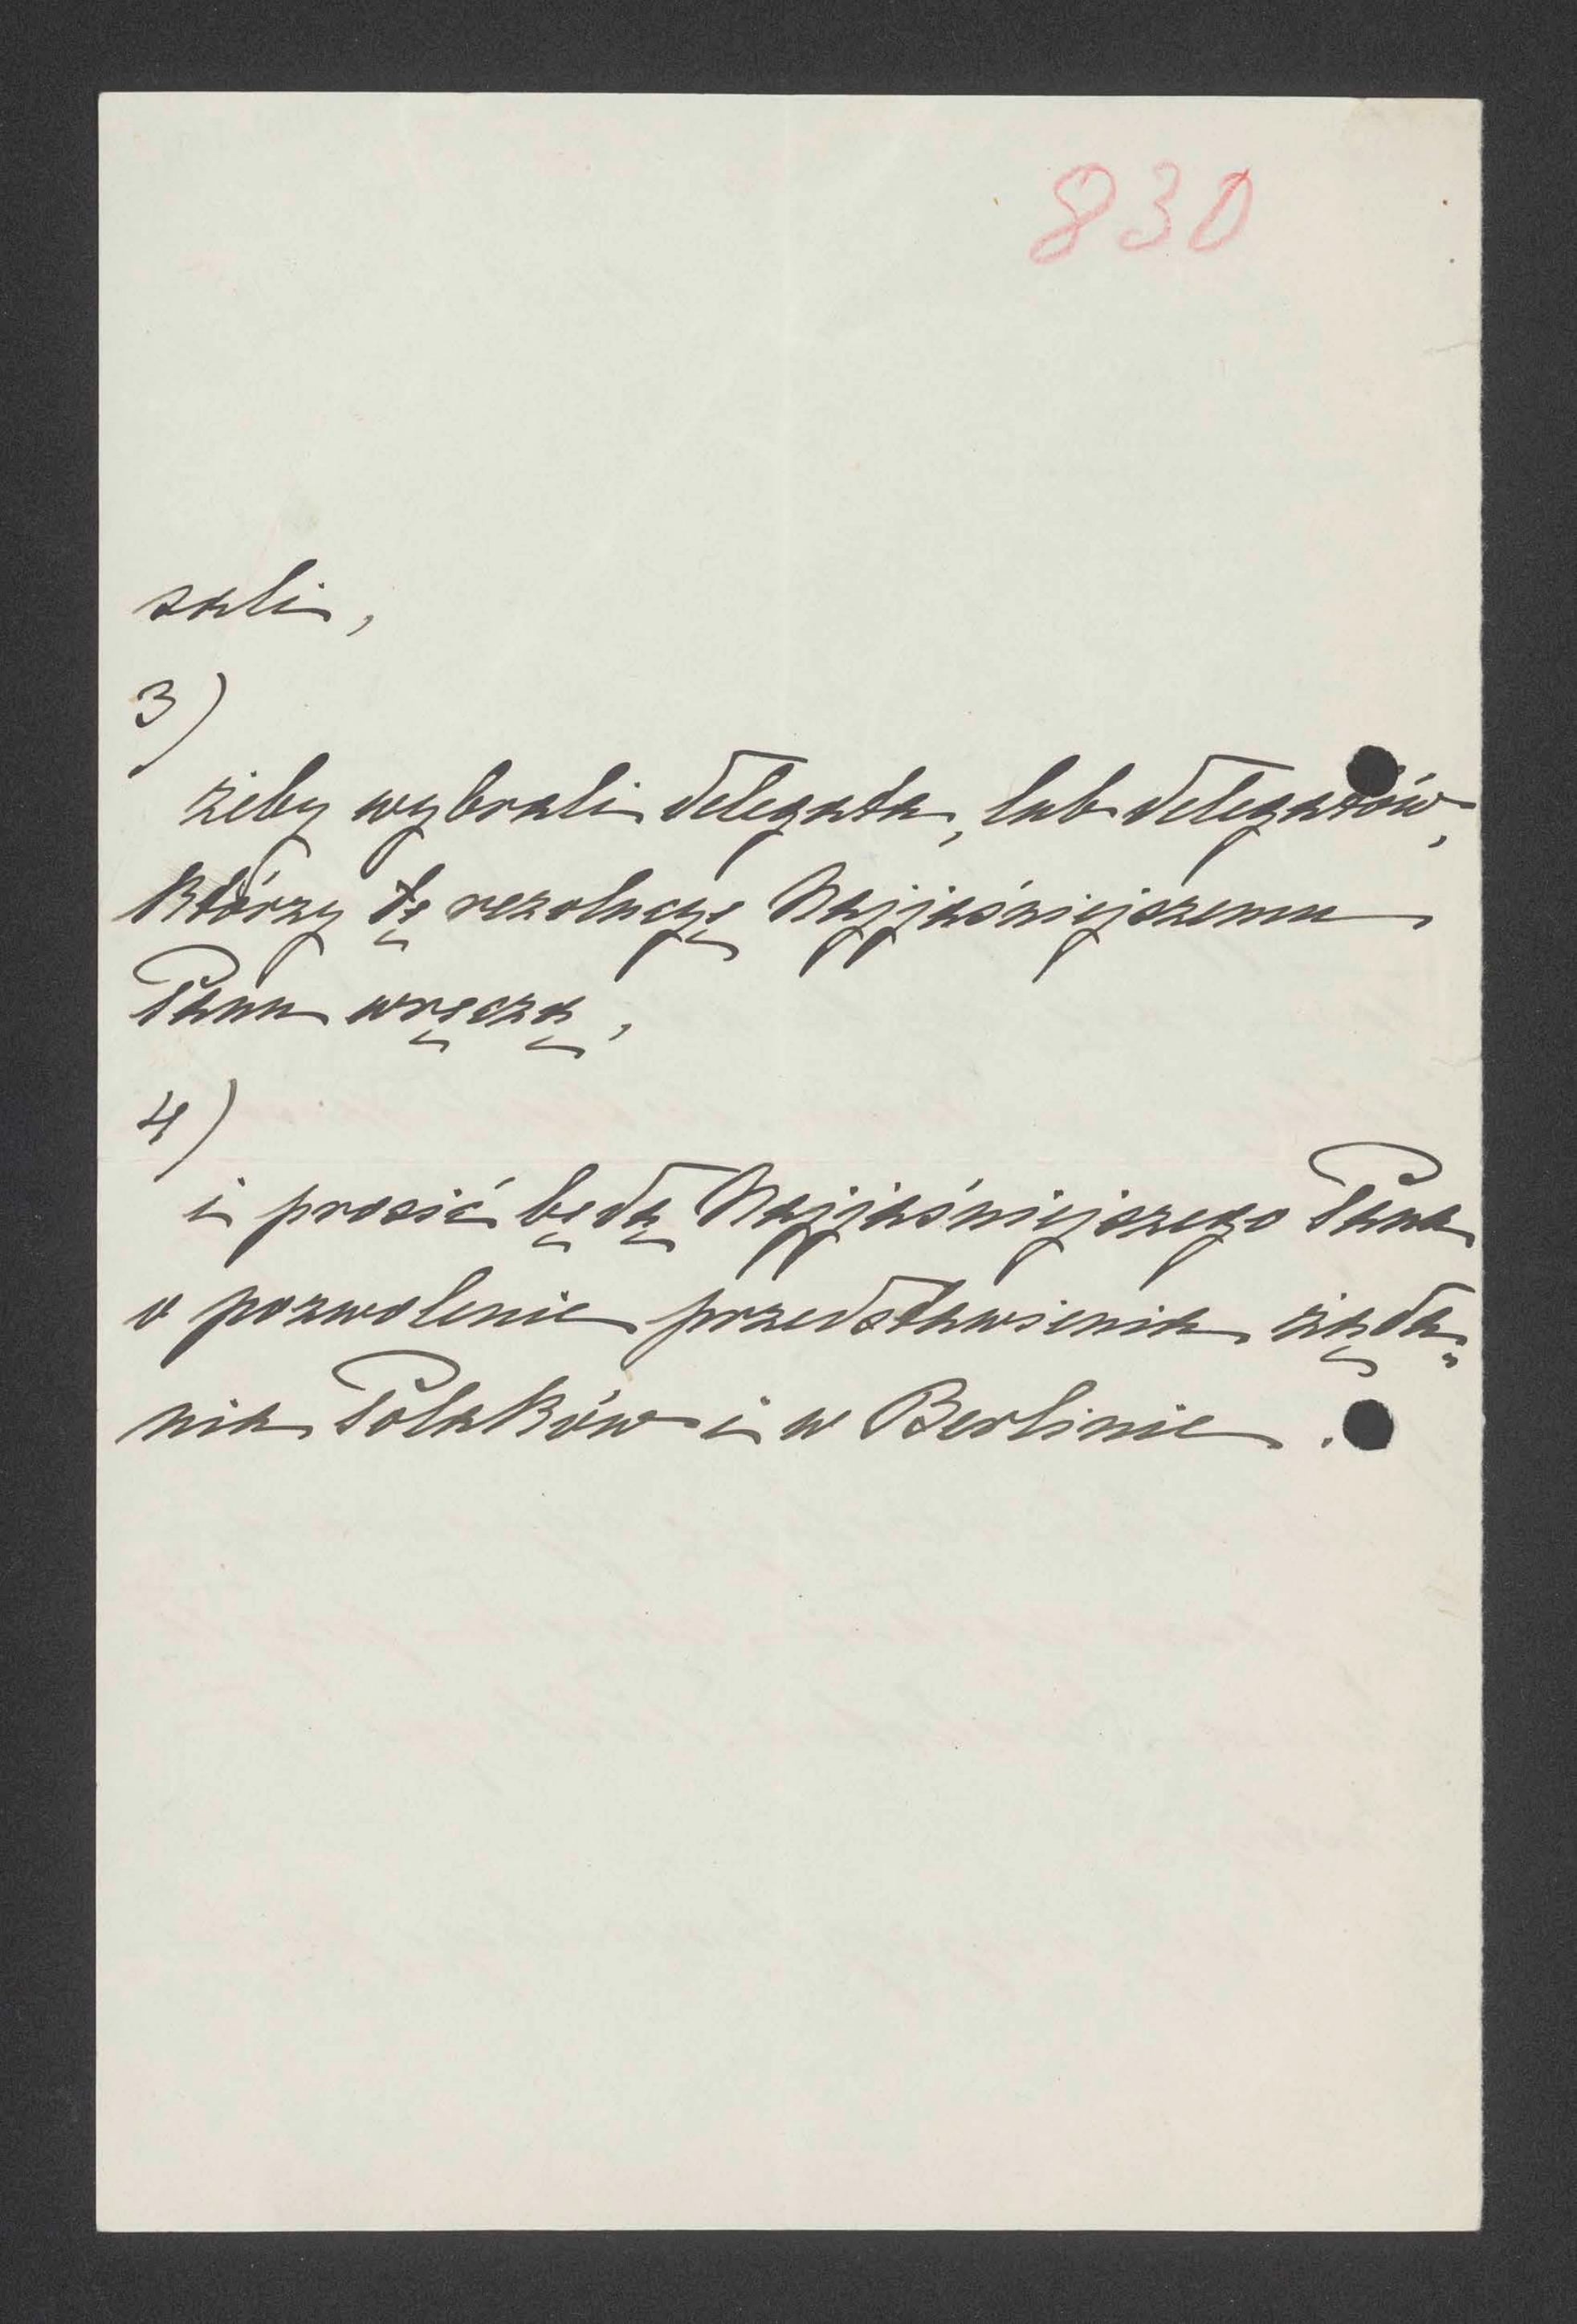 830
sali,
3)
żeby wybrali delegata, lub delegatów,
którzy tę rezolucyę Najjaśniejszemu
Panu wręczą,
4)
i prosić będą Najjaśniejszego Pana
o pozwolenie przedstawienia żąda„
nia Polaków i w Berlinie.